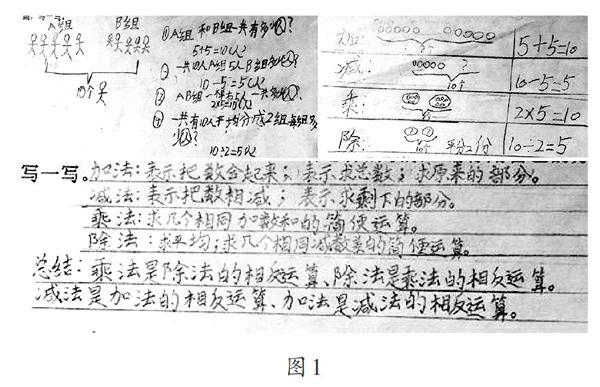 A组 B组
10个人
①A组和B组一共有多少人?
5+5=10(人)
②一共10人A组5人B组多少人?
10-5=5(人)
③AB组一样有5人一共多少人?
2x5=10(人)
④一共有10人平均分成2组每组多少人?
10÷2=5(人)
加: 5+5=10
减: ? 10个 10-5=5
乘: 2x5=10
除: 平分2份 10÷2=5
写一写。加法:表示把数合起来;表示求总数;求原来的部分。
减法:表示把数相减;表示求剩下的部分。
乘法:求几个相同加数和的简便运算。
除法:求平均;求几个相同减数差的简便运算。
总结:乘法是除法的相反运算、除法是乘法的相反运算。
减法是加法的相反运算、加法是减法的相反运算。
图1